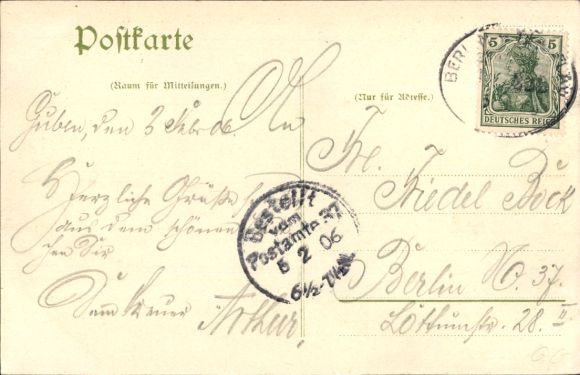 Postkarte
(Raum für Mitteilungen.)
Guben, den 3 Febr 06.
Herzliche Grüße
aus dem schönen
Dein treuer Arthur
(Nur für Adresse.)
An
Frl. Friedel Bock
Berlin No. 37.
Lottumstr. 28. II
5 5
DEUTSCHES REICH
BERLIN
Bestellt
vom
Postamte 37
5 2 06
6½-7½N